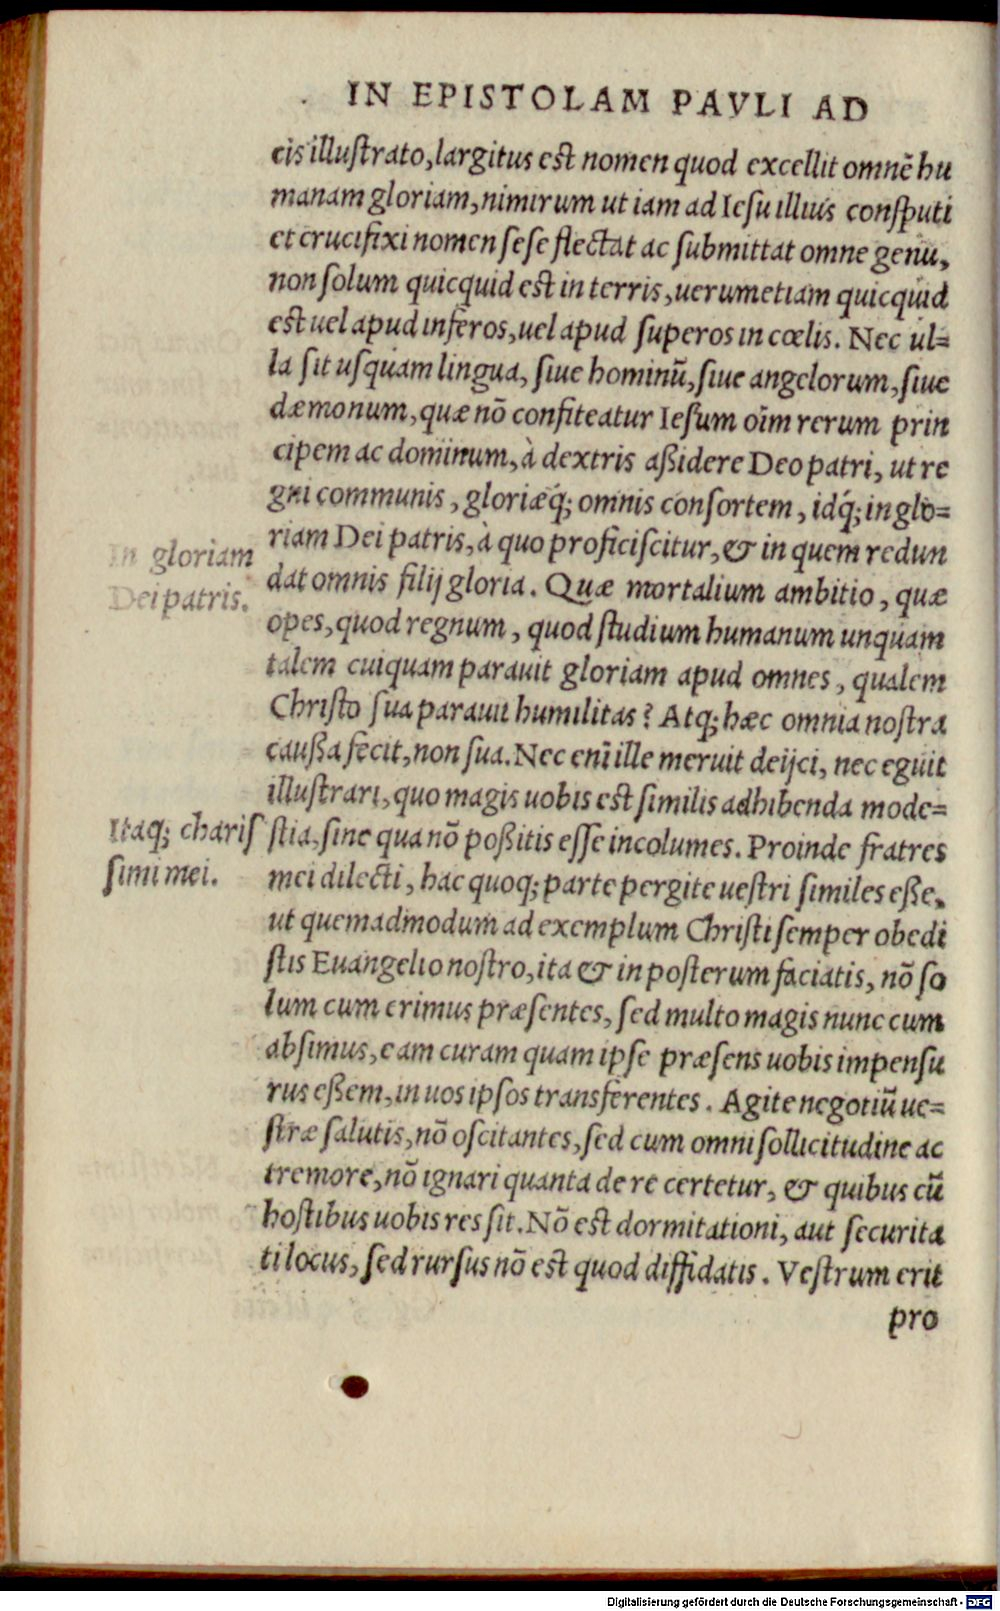 IN EPISTOLAM PAVLI AD
cis illustrato, largitus est nomen quod excellit omnē hu
manam gloriam, nimirum ut iam ad Iesu illius consputi
et crucifixi nomen sese flectat ac submittat omne genu,
non solum quicquid est in terris, uerumetiam quicquid
est uel apud inferos, uel apud superos in cœlis. Nec ul=
la sit usquam lingua, siue hominū, siue angelorum, siue
dæmonum, quæ nō confiteatur Iesum oīm rerum prin
cipem ac dominum, à dextris aßidere Deo patri, ut re
gni communis, gloriæq́; omnis consortem, idq́; in glo=
In gloriam
Dei patris.
riam Dei patris, à quo proficiscitur, & in quem redun
dat omnis filij gloria. Quæ mortalium ambitio, quæ
opes, quod regnum, quod studium humanum unquam
talem cuiquam parauit gloriam apud omnes, qualem
Christo sua parauit humilitas? Atq; hæc omnia nostra
caußa fecit, non sua. Nec enī ille meruit deijci, nec eguit
illustrari, quo magis uobis est similis adhibenda mode=
Itaq; charis
simi mei.
stia, sine qua nō poßitis esse incolumes. Proinde fratres
mei dilecti, hac quoq; parte pergite uestri similes eße,
ut quemadmodum ad exemplum Christi semper obedi
stis Euangelio nostro, ita & in posterum faciatis, nō so
lum cum erimus præsentes, sed multo magis nunc cum
absimus, eam curam quam ipse præsens uobis impensu
rus eßem, in uos ipsos transferentes. Agite negotiū ue=
stræ salutis, nō oscitantes, sed cum omni sollicitudine ac
tremore, nō ignari quanta de re certetur, & quibus cū
hostibus uobis res sit. Nō est dormitationi, aut securita
ti locus, sed rursus nō est quod diffidatis. Vestrum erit
pro
Digitalisierung gefördert durch die Deutsche Forschungsgemeinschaft - DFG